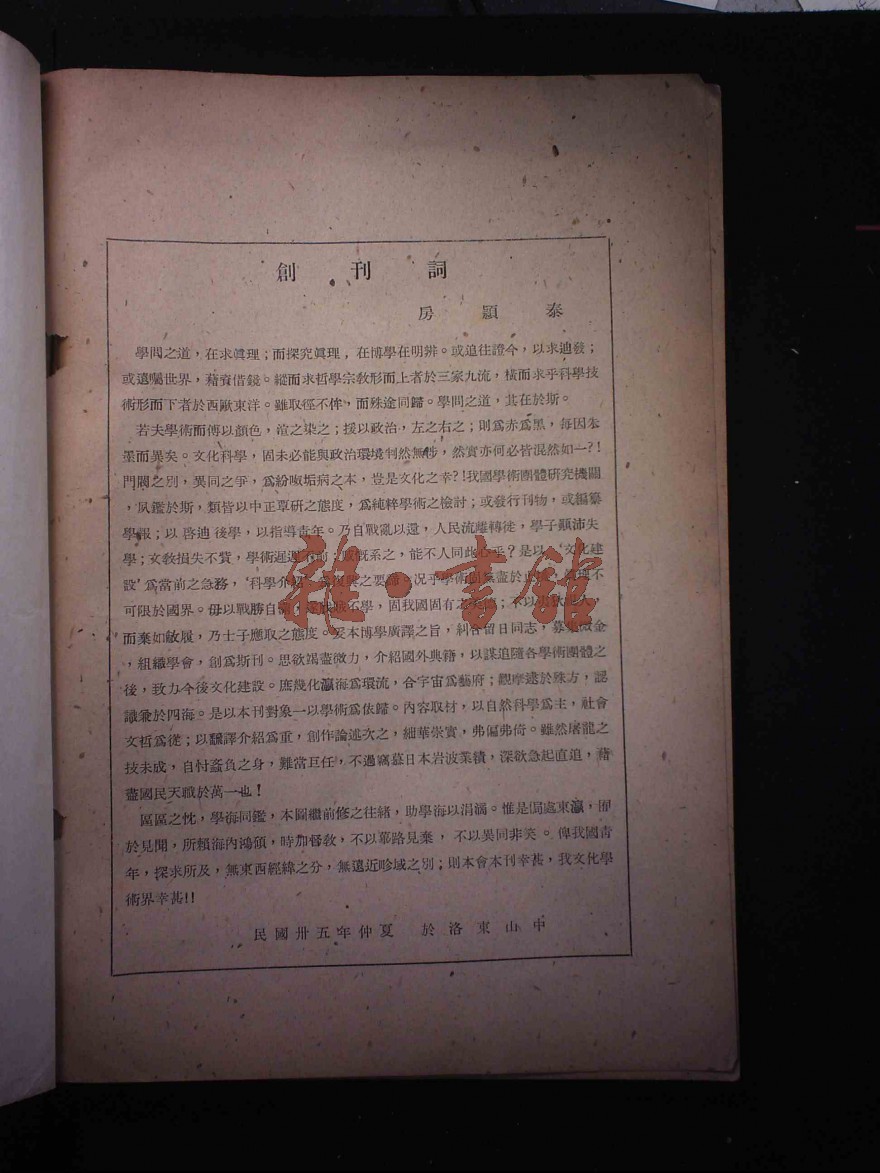 創刊詞
房顯泰
學問之道，在求眞理；而探究眞理，在博學在明辨。或追往證今，以求廸發；
或遠矚世界，藉資借鏡。縱而求哲學宗敎形而上者於三家九流，橫而求乎科學技
術形而下者於西歐東洋。雖取徑不侔，而殊途同歸。學問之道，其在於斯。
若夫學術而傅以顏色，渲之染之；援以政治，左之右之；則爲赤爲黑，每因本
墨而異矣。文化科學，固未必能與政治環境判然無涉，然實亦何必皆混然如一?!
門閥之別，異同之爭，爲紛呶垢病之本，豈是文化之幸?!我國學術團體研究機關
，夙鑑於斯，類皆以中正覃硏之態度，爲純粹學術之檢討；或發行刊物，或編纂
學報；以啓迪後學，以指導靑年。乃自戰亂以還，人民流離轉徙，學子顚沛失
學；文敎損失不貲，學術遲遲不前；慨系之，能不人同此心乎？是以，‘文化建
設’爲當前之急務，‘科學介紹’爲復興之要。况乎學術無盡於，理不
可限於國界。毋以戰勝自不學，固我國固有之；不以
而棄如敝屣，乃士子應取之態度。爰本博學廣譯之旨，糾合留日同志，募集微金
，組織學會，創爲斯刊。思欲竭盡微力，介紹國外典籍，以謀追隨各學術團體之
後，致力今後文化建設。庶幾化瀛海爲環流，合宇宙爲藝府；觀摩逮於殊方，認
識兼於四海。是以本刊對象一以學術爲依歸。內容取材，以自然科學爲主，社會
文哲爲從；以飜譯介紹爲重，創作論述次之，細華崇實，弗偏弗倚。雖然屠龍之
技未成，自忖蚉負之身，難當巨任，不過竊慕日本岩波業績，深欲急起直追，藉
盡國民天職於萬一也！
區區之忱，學海同鑑，本圖繼前修之往緒，助學海以涓滴。惟是侷處東瀛，囿
於見聞，所賴海內鴻碩，時加督敎，不以蓽路見棄，不以異同非笑。俾我國靑
年，探求所及，無東西經緯之分，無遠近畛域之別；則本會本刊幸甚，我文化學
術界幸甚!!
民國卅五年仲夏 於洛東山中